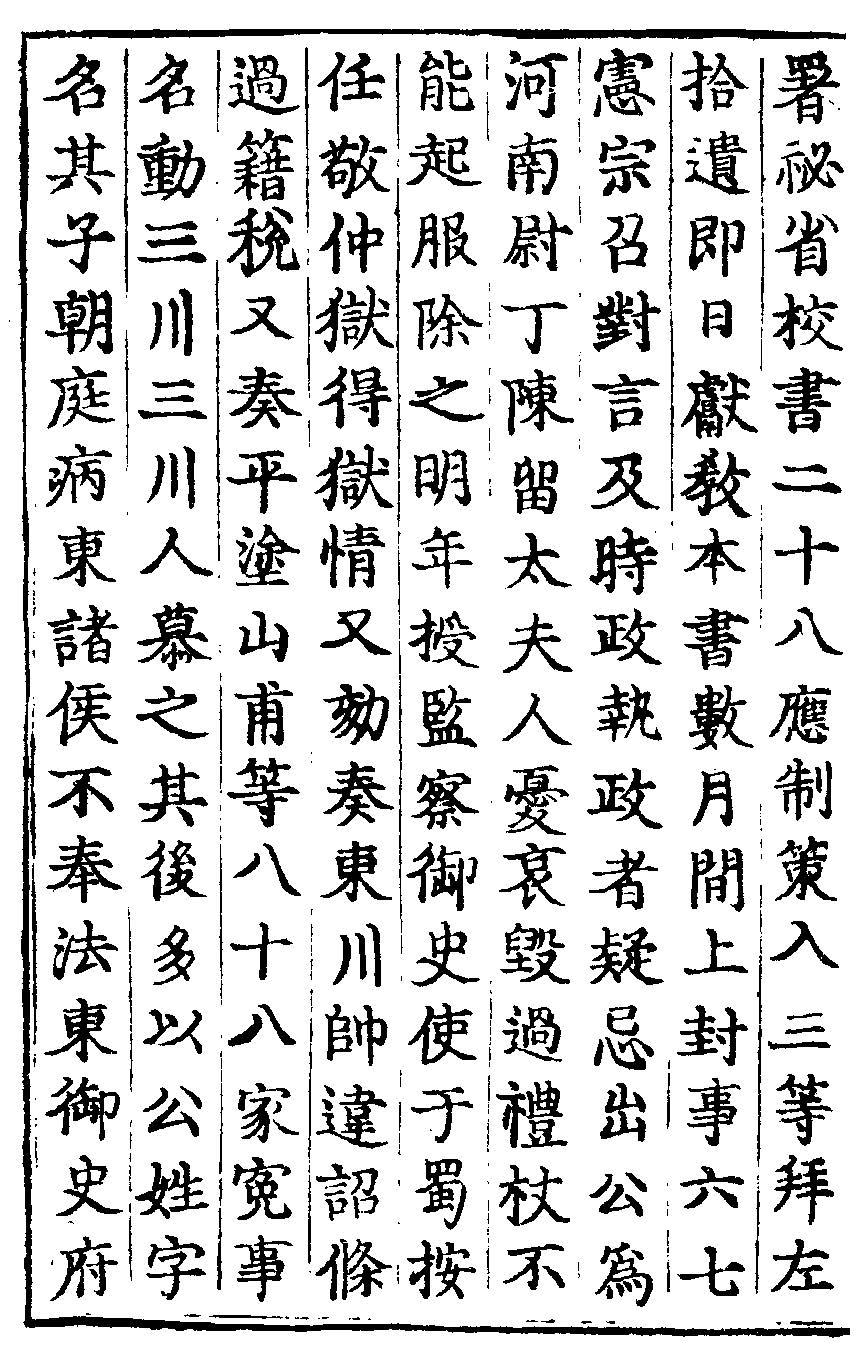 署祕省校書二十八應制策入三等拜左
拾遺即日獻敎本書數月間上封事六七
憲宗召對言及時政執政者疑忌出公爲
河南尉丁陳留太夫人憂哀毀過禮杖不
能起服除之明年授監察御史使于蜀按
任敬仲獄得獄情又劾奏東川帥違詔條
過籍稅又奏平塗山甫等八十八家寃事
名動三川三川人慕之其後多以公姓字
名其子朝庭病東諸侯不奉法東御史府